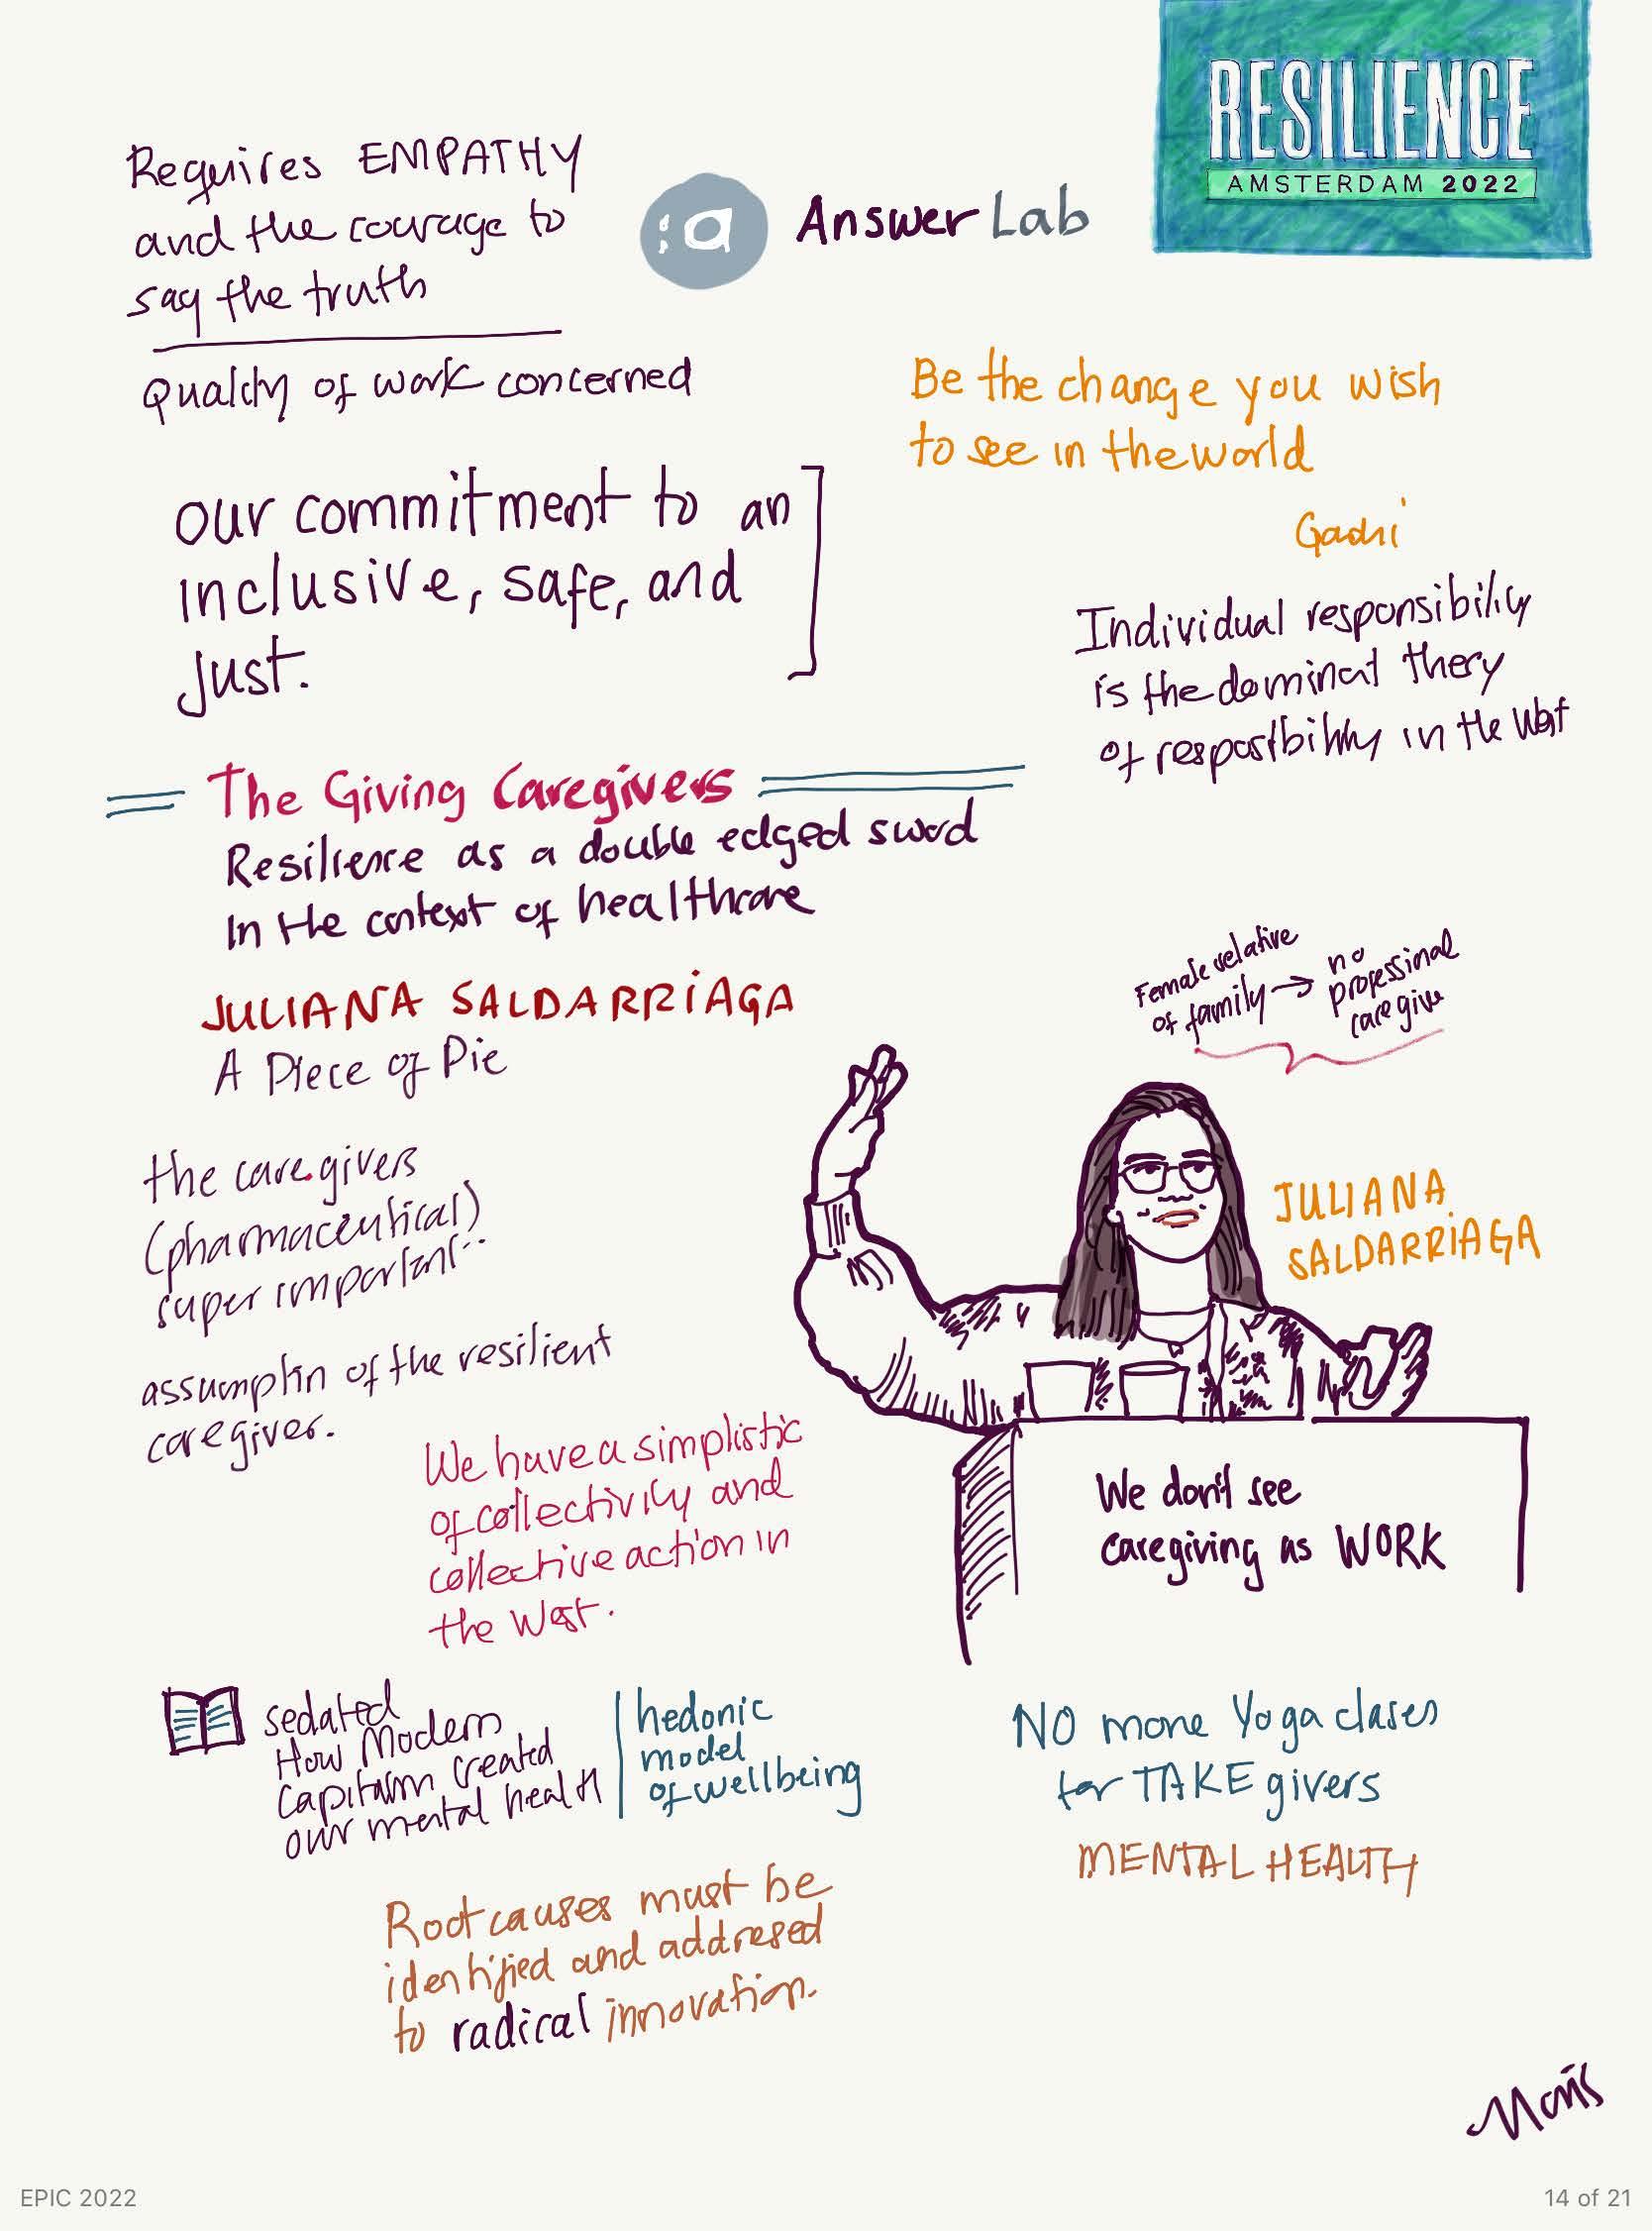 RESILIENCE
AMSTERDAM 2022
Requires EMPATHY
and the courage to
say the truth
:a Answer Lab
Qualdy of work concerned
Be the change you wish
to see in the world
Gadhi
our commitment to an
inclusive, safe, and
just.
Individual responsibility
is the dominat thery
of in the West
The Giving Caregivers
Resilience as a double edged sword
In the context of healthcare
JULIANA SALDARRIAGA
A Piece of Pie
Female relative
of family → no
professinal
care give
the caregivers
(pharmaceutical)
super important..
JULIANA
SALDARRIAGA
assumptin of the resilient
caregiver.
We have a simplistic
of collectivity and
collective action in
the West.
We don't see
caregiving as WORK
sedated
How Modern
created
our mental health
hedonic
model
of wellbeing
NO more Yoga clases
for TAKE givers
MENTAL HEALTH
Root causes must be
identified and addresed
to radical innovation.
EPIC 2022
14 of 21